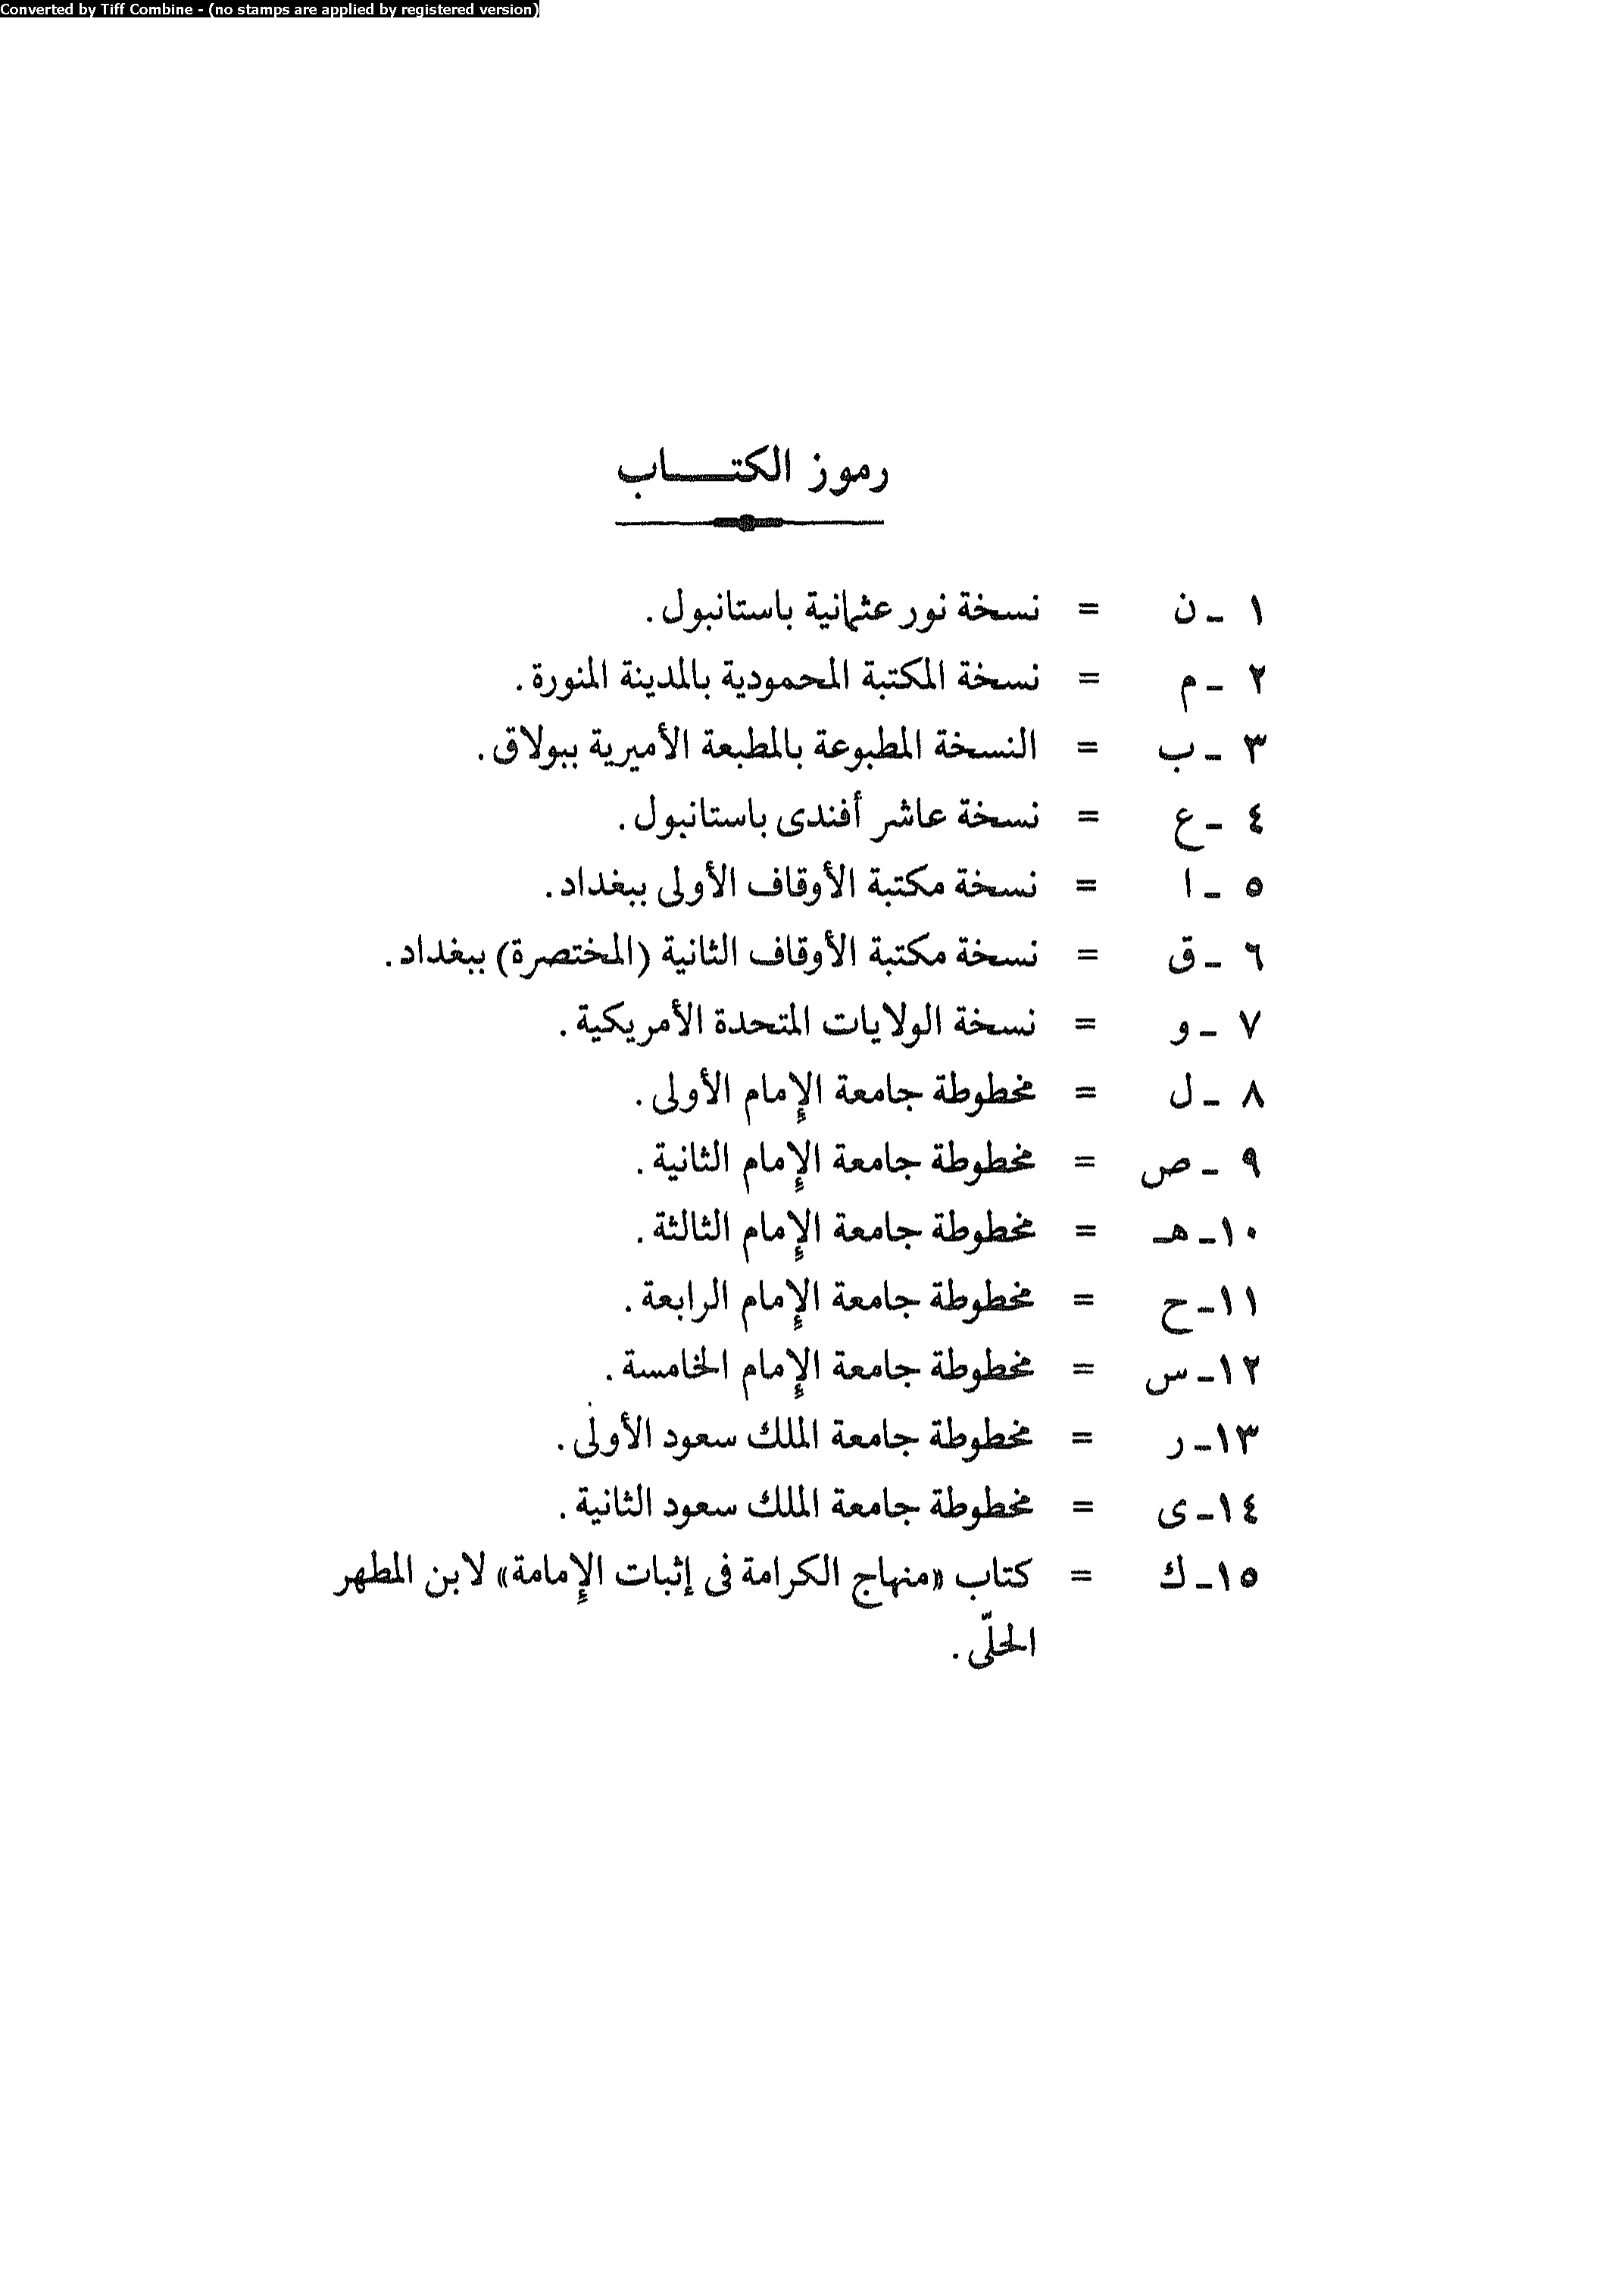 Converted by Tiff Combine - (no stamps are applied by registered version)
رموز الكتـــاب
١ - ن = نسخة نور عثمانية باستانبول .
٢ - م = نسخة المكتبة المحمودية بالمدينة المنورة .
٣ - ب = النسخة المطبوعة بالمطبعة الأميرية ببولاق .
٤ - ع = نسخة عاشر أفندى باستانبول .
٥ - ا = نسخة مكتبة الأوقاف الأولى ببغداد .
٦ - ق = نسخة مكتبة الأوقاف الثانية (المختصرة) ببغداد .
٧ - و = نسخة الولايات المتحدة الأمريكية .
٨ - ل = مخطوطة جامعة الإمام الأولى .
٩ - ص = مخطوطة جامعة الإمام الثانية .
١٠- هـ = مخطوطة جامعة الإمام الثالثة .
١١- ح = مخطوطة جامعة الإمام الرابعة .
١٢- س = مخطوطة جامعة الإمام الخامسة .
١٣- ر = مخطوطة جامعة الملك سعود الأولى .
١٤- ى = مخطوطة جامعة الملك سعود الثانية .
١٥- ك = كتاب «منهاج الكرامة فى إثبات الإمامة» لابن المطهر
الحلّى .